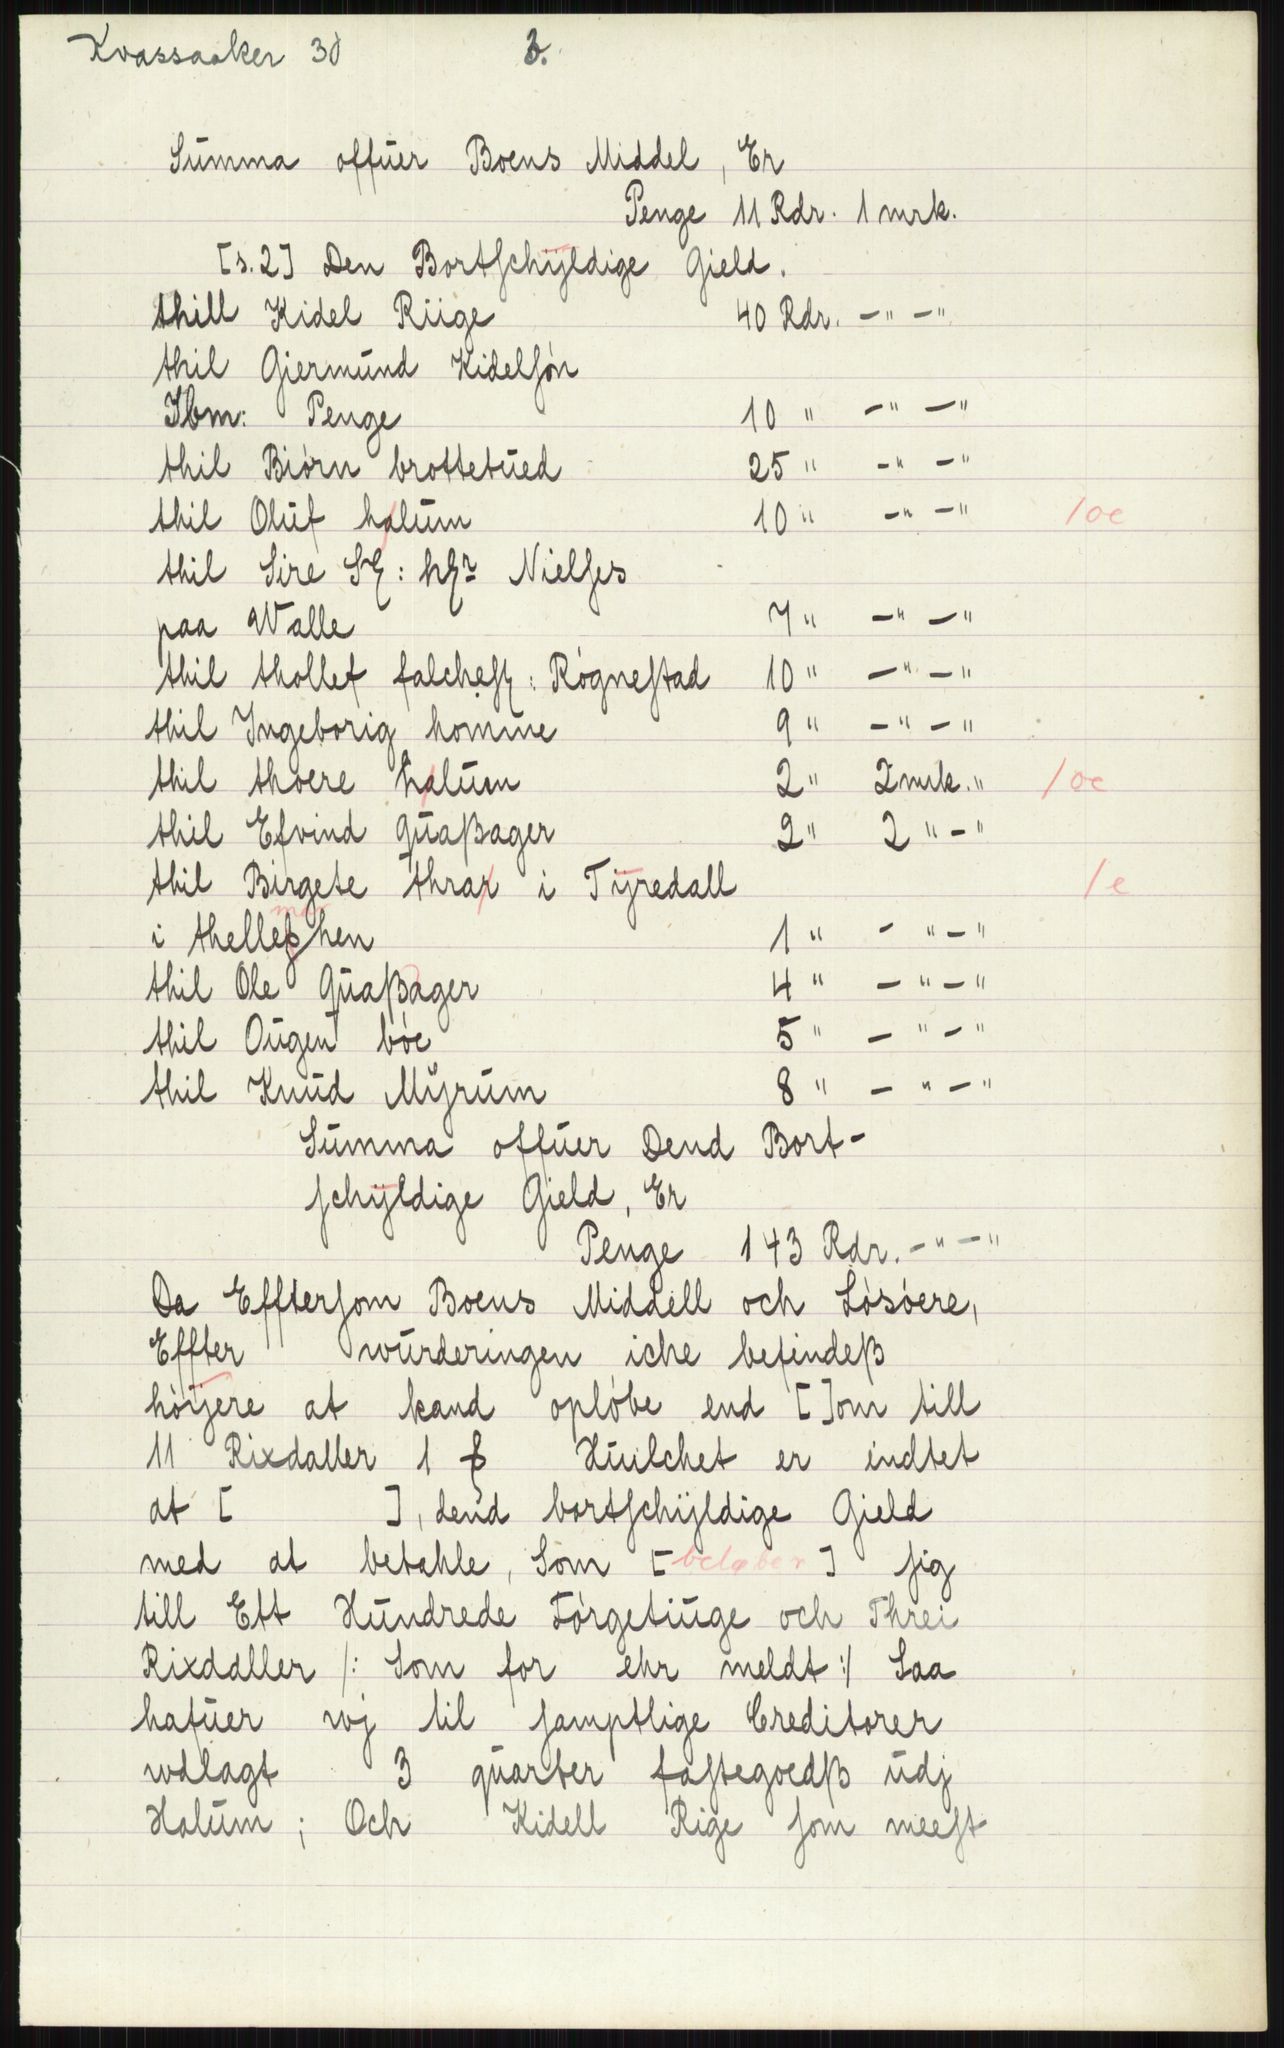 Kvassaaker 30 3.
Summa offuer Boens Middel, Er
Penge 11 Rdr. 1 mrk.
[s. 2] Den Bortschÿldige Gield.
thill Kidel Riige 40 Rdr. -" -"
thil Giermund Kidelsøn
Ibm: Penge 10 " -" -"
thil Biørn brottetued 25 " -" -"
thil Oluf halum 10 " -" -" /oe
thil Sire Nielses
paa Walle 7 " -" -"
thil thollef Røgnestad 10 " -" -"
thil Ingeborig homme 9 " -" -"
thil thoere halum 2 " 2 mrk. " /oe
thil Efvind Quaßager 2 " 2 " - "
thil Birgete thrax i Tÿredall /e
i 1 " - " - "
thil Ole Quaßager 4 " - " - "
thil Ougen bøe 5 " - " - "
thil Knud Mÿrum 8 " - " - "
Summa offuer Dend Bort-
schÿldige Gield, Er
Penge 143 Rdr. -" -"
Da Efftersom Boens Middell och Løsøere,
Effter wurderingen iche befindeß
høijere at kand opløbe end [ ]om till
11 Rixdaller 1 Huilchet er indtet
at [ ], dend bortschÿldige Gield
med at betahle, Som [beløber] sig
till Ett Hundrede Førgetiuge och Threi
Rixdaller /: Som for ehr meldt :/ Saa
hafuer wj til samptlige Creditorer
wdlagt 3 quarter fastegoedß udj
Halum ; Och Kidell Rige som meest